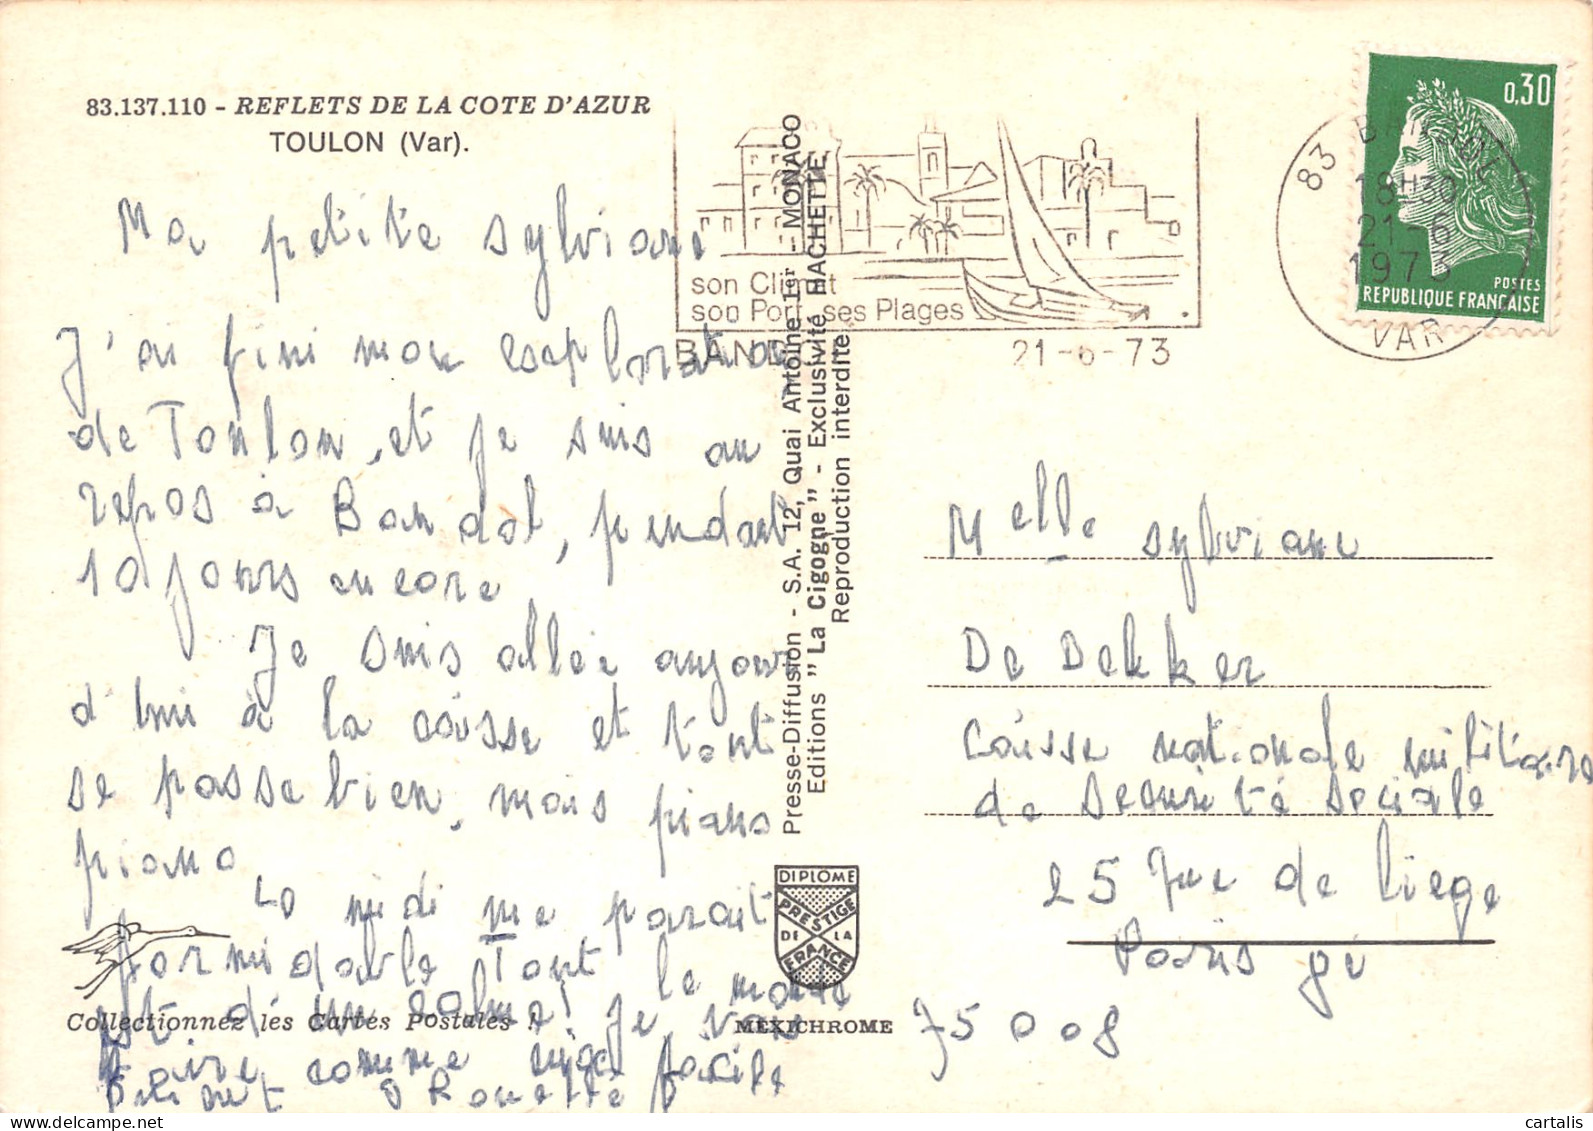 83.137.110 - REFLETS DE LA COTE D'AZUR
TOULON (Var).
Ma petite sylviane
J'ai fini mon exploration
de Toulon, et je suis au
repos à Bandol, pendant
10 jours encore
Je suis allée aujour
d'hui à la caisse et tout
se passe bien, mais piano
piano
La midi me parait
formidable Tout le monde
est d'un calme! Je vais
faire comme
Collectionnez les Cartes Postales !
MEXICHROME
DIPLOME
PRESTIGE
DE LA
FRANCE
Presse-Diffusion - S.A. 12, Quai Antoine 1er - MONACO
Editions "La Cigogne" - Exclusivité HACHETTE
Reproduction interdite
son Climat
son Port ses Plages
BANDOL 21-6-73
83 BANDOL
18H30
21-6
1973
VAR
0,30
POSTES
REPUBLIQUE FRANÇAISE
Melle sylviane
De Dekker
Caisse nationale militaire
de securité sociale
25 rue de liege
Paris 9e
75008